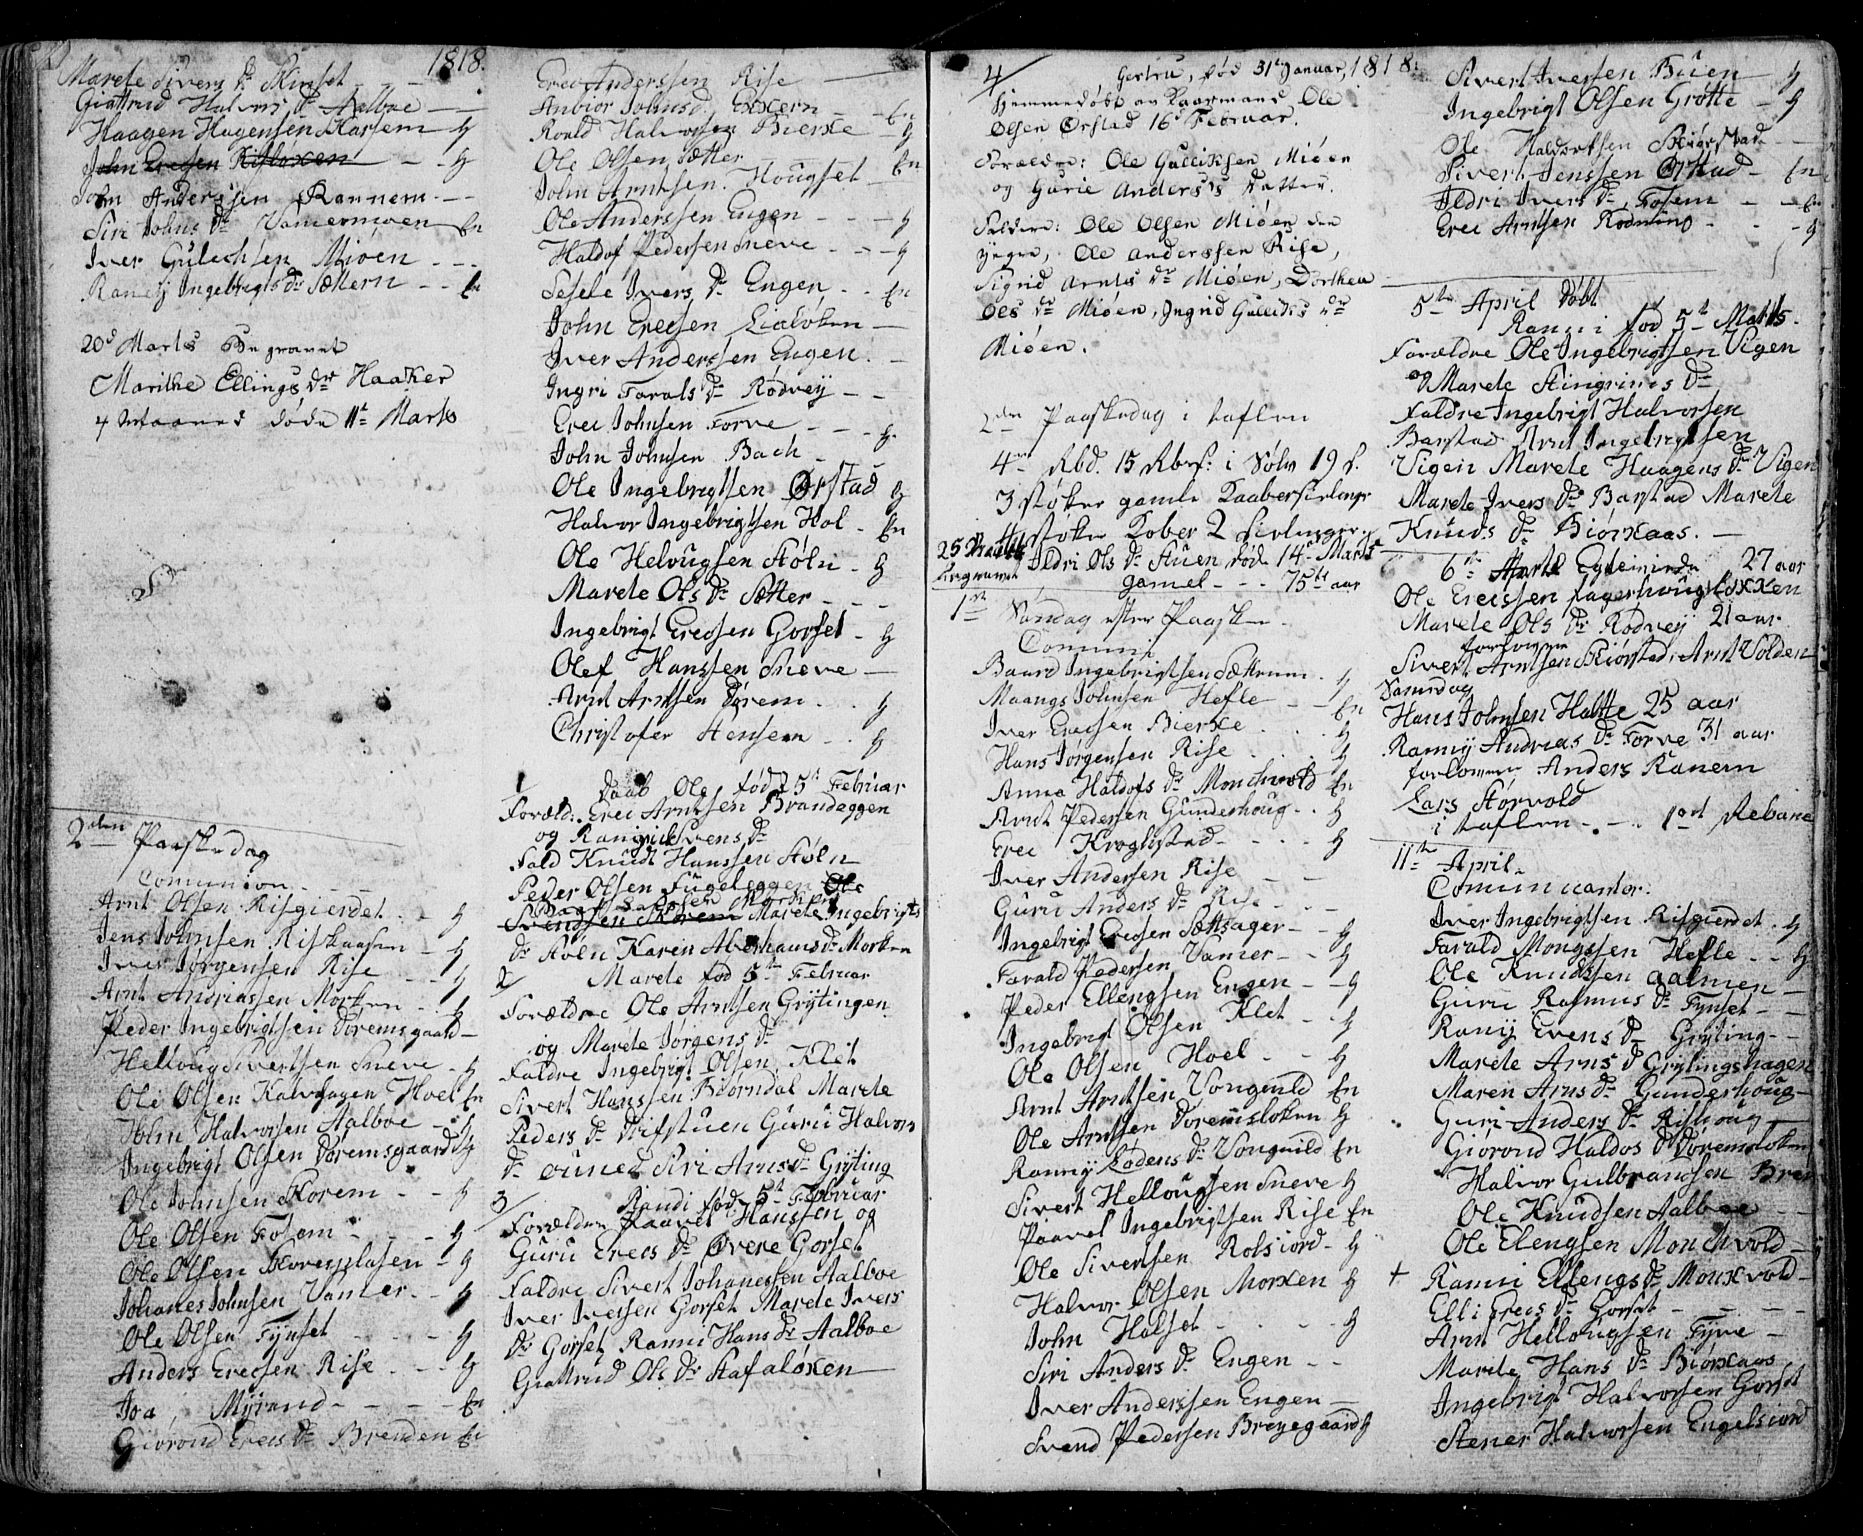 1818.
Marete Sivers Dr Skinset
Giattrud Halvors Dr Aalboe
Haagen Hagensen Harsem
John Erecsen Risloxen
John Anderssen Rannem
Siri Johns Dr Vammermoen En
Iver Gulechsen Mioen
Raney Ingebrigts Dr Sættern En
20d Marts Begravet
Marithe Ellings Dr Haaker
4 Maaned døde 11te Marts
2den Paaskedag
Comunion
Arnt Olsen Risgierdet
Jens Johnsen Riskaasen
Iver Jørgensen Rise
Arnt Andriassen Morken
Peder Ingebrigtsen Doremsgaard
Helloug Sivertsen Sneve
Ole Olsen Kalvhagen Hoel En
John Halvorsen Aalboe
Ingebrigt Olsen Doremsgaard
Ole Johnsen Skorem
Ole Olsen Fosem
Ole Olsen Skoremplasen
Johanes Johnsen Vamer
Ole Olsen Fynset
Anders Erecsen Rise
Iva Myrand En
Giorond Erecs Dr Brenden En
Erec Anderssen Rise
Anbior Johnsd. Exxern En
Roald Halvorsen Bierke
Ole Olsen Sætter En
John Arntsen Hougset
Ole Anderssen Engen
Haldof Pedersen Sneve
Sesele Ivers Dr Engen En
John Erecsen Lialøken
Iver Anderssen Engen
Ingri Farals Dr Rødvey
Erec Johnsen Forve
John Johnsen Bach
Ole Ingebrigtsen Ørstad
Halvor Ingebrigtsen Hol En
Ole Helvugsen Støln
Marete Ols Dr Sætter
Ingebrigt Erecsen Gorset
Olef Hanssen Sneve
Arnt Arntsen Dorem
Christofer Stensem
1 Daab Ole fød 25t Februar
Foræld: Erec Arntsen Brandeggen
og Ranni Svens Dr
Fald Knudt Hanssen Støln
Peder Olsen Fugeleggen Ole
Svendsen Skorem Marete Ingebrigts
Dr Støln Karen Abrahams Dr Morken
2/ Marete fød 5te Februar
Forældre Ole Arntsen Grytingen
og Marete Jørgens Dr
Faldre Ingebrigt Olsen Klet
Sivert Hanssen Biørndal Marete
Peders Dr Drifstuen Guru Halvors
Dr Siri Arns Dr Gryting
3/ Randi fød 5t Februar
Forældre Paavel Hanssen og
Guru Erecs Dr Øvere Gorset
Faldre Sivert Johanessen Aalboe
Iver Iverssen Gorset Marete Ivers
Dr Gorset Ranni Hans Dr Aalboe
Giattrud Ols Dr Stafaløxen
4/ Gertru, fød 31te Januar, 1818.
Hjemmedøbt av Kaarmand Ole
Olsen Ørstad 16d Februar.
Forældre: Ole Gulliksen Miøen
og Gurie Anders's Datter.
Faddere: Ole Olsen Miøen den
yngre, Ole Anderssen Rise,
Sigrid Arnts Dr Miøen, Dorthea
Oles Dr Miøen, Ingrid Gulliks Dr
Miøen.
2den Paaskedag i taflen
4re Rbd. 15 Rbss: i Sølv 19 s.
3 støker gamle Kaaberskilenger
4 støker Kober 2 skilenger
25 Marts Begravet Ildri Ols Dr Stuen død 14de Marts
gamel 75te aar
1ste Søndag efter Paaske
Comuni
Baard Ingebrigtsen Sættrum
Maangs Johnsen Hefle En
Iver Erecsen Bierke
Hans Jorgensen Rise
Anne Haldofs Dr Monchvold En
Arnt Pedersen Gunderhoug
Erec Krogstad
Iver Andersen Rise
Guru Anders Dr Rise
Ingebrigt Erecsen Sættsager
Farald Pedersen Vamer
Peder Ellengsen Engen
Ingebrigt Olsen Klet
Ole Olsen Hoel
Arnt Arntsen Vongvild En
Ole Arntsen Doremsloken
Ranny Lodens Dr Vongvild En
Sivert Hellougsen Sneve
Paavel Ingebrigtsen Rise En
Ole Siversen Rolsiord
Halvor Olsen Morxen
John Halset
Siri Anders Dr Engen
Iver Anderssen Engen
Svend Pedersen Breyegaard
Sivert Iverssen Buen
Ingebrigt Olsen Grøtte
Ole Haldorssen Skiørstad
Sivert Jenssen Ørstad En
Ildri Ivers Dr Fosem En
Erec Arntsen Rodning
5te April Døbt
Ranni fød 5te Marts.
Forældre Ole Ingebrigtsen Vigen
og Marete Stingrims Dr
Faldre Ingebrigt Halvorsen
Barstad Arnt Ingebrigtsen
Vigen Marete Haagens Dr Vigen
Marete Ivers Dr Barstad Marete
Knuds Dr Biørkaas.
6te 27 aar
Ole Erecssen Fagerhougløkken
Marete Ols Dr Rodvey 21 aar
forlover
Sivert Arntsen Skiorstad, Arnt Volden
Samedag
Hans Johnsen Hattte 25 aar
Ranny Andreas Dr Forve 31 aar
forlover Anders Ranem
Lars Storvold
i taflen 1 ort
11te April
Comunicanter.
Iver Ingebrigtsen Risgierdet
Farald Mongssen Hefle
Ole Knudssen Aalmen
Guru Rasmus Dr Fynset
Rany Evens Dr Gryting
Marete Arns Dr Grytingshagen
Maren Arns Dr Gunderhoug
Guri Anders Dr Rishoug
Giorond Haldos Dr Doremsloken
Halvor Gulbrandsen Bren
Ole Knudsen Aalboe
Ole Elengsen Monchvold
+ Ranni Ellengs Dr Monkvold
Elli Erecs Dr Gorset
Arnt Hellougsen Fyve
Marete Hans Dr Biørkaas
Ingebrigt Halvorsen Gorset
Stener Halvorsen Engelsiord